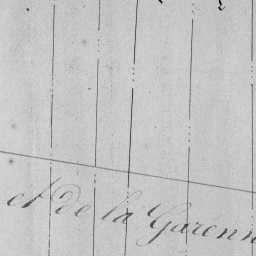 et de la Garenn